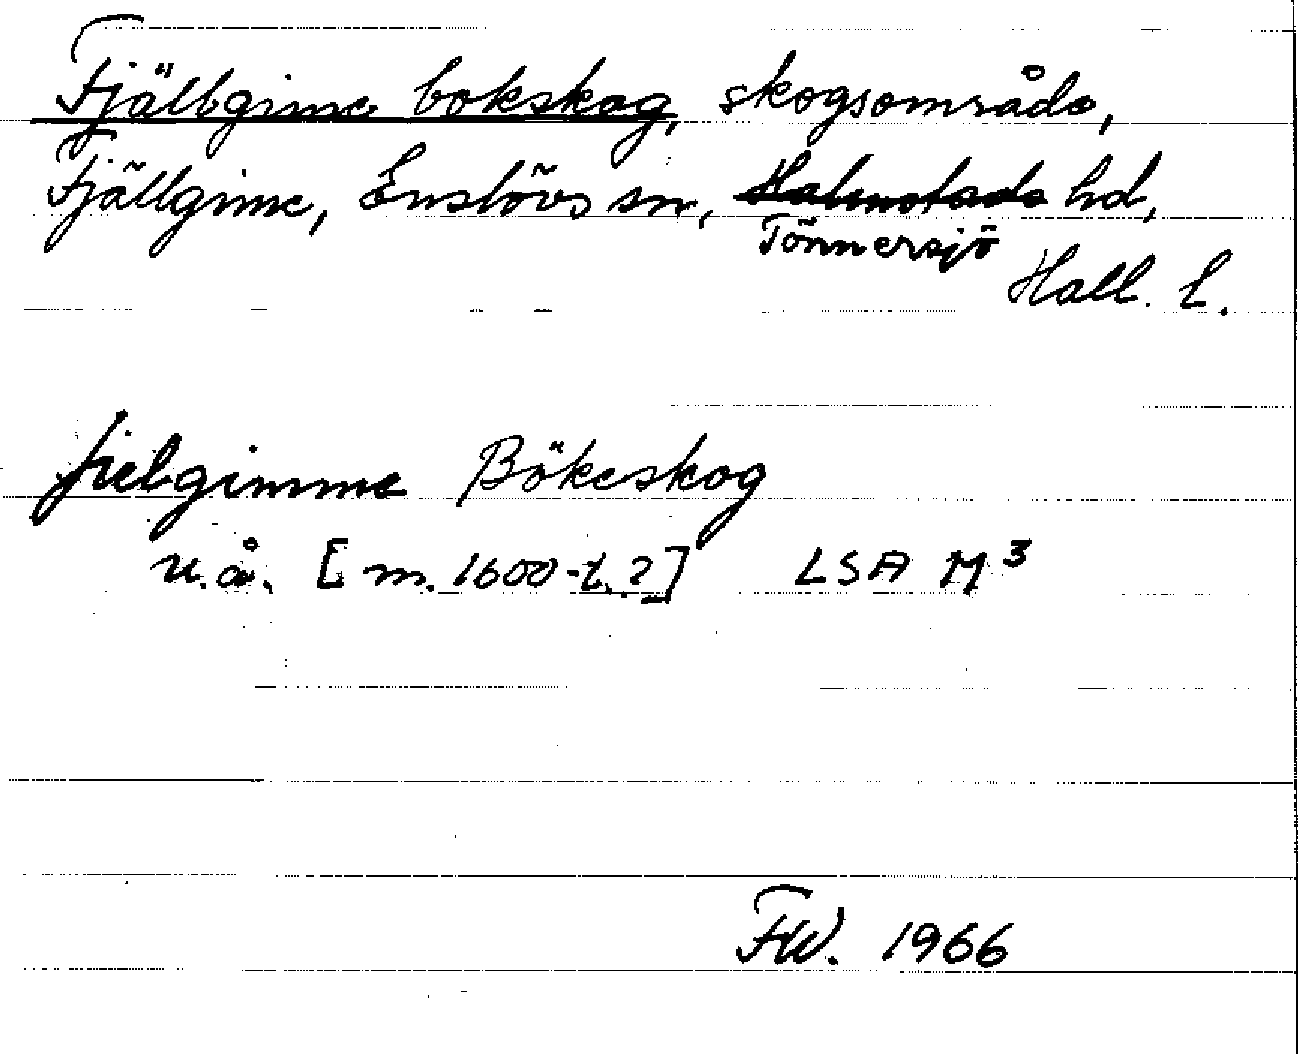 Fjällgime bokskog, skogsområde,
Fjällgime, Enslövs sn, Halmstads hd,
Tönnersjö
Hall. l.
fielgimme Bökeskog
u.å. [m. 1600-t.?] LSA M³
FW. 1966